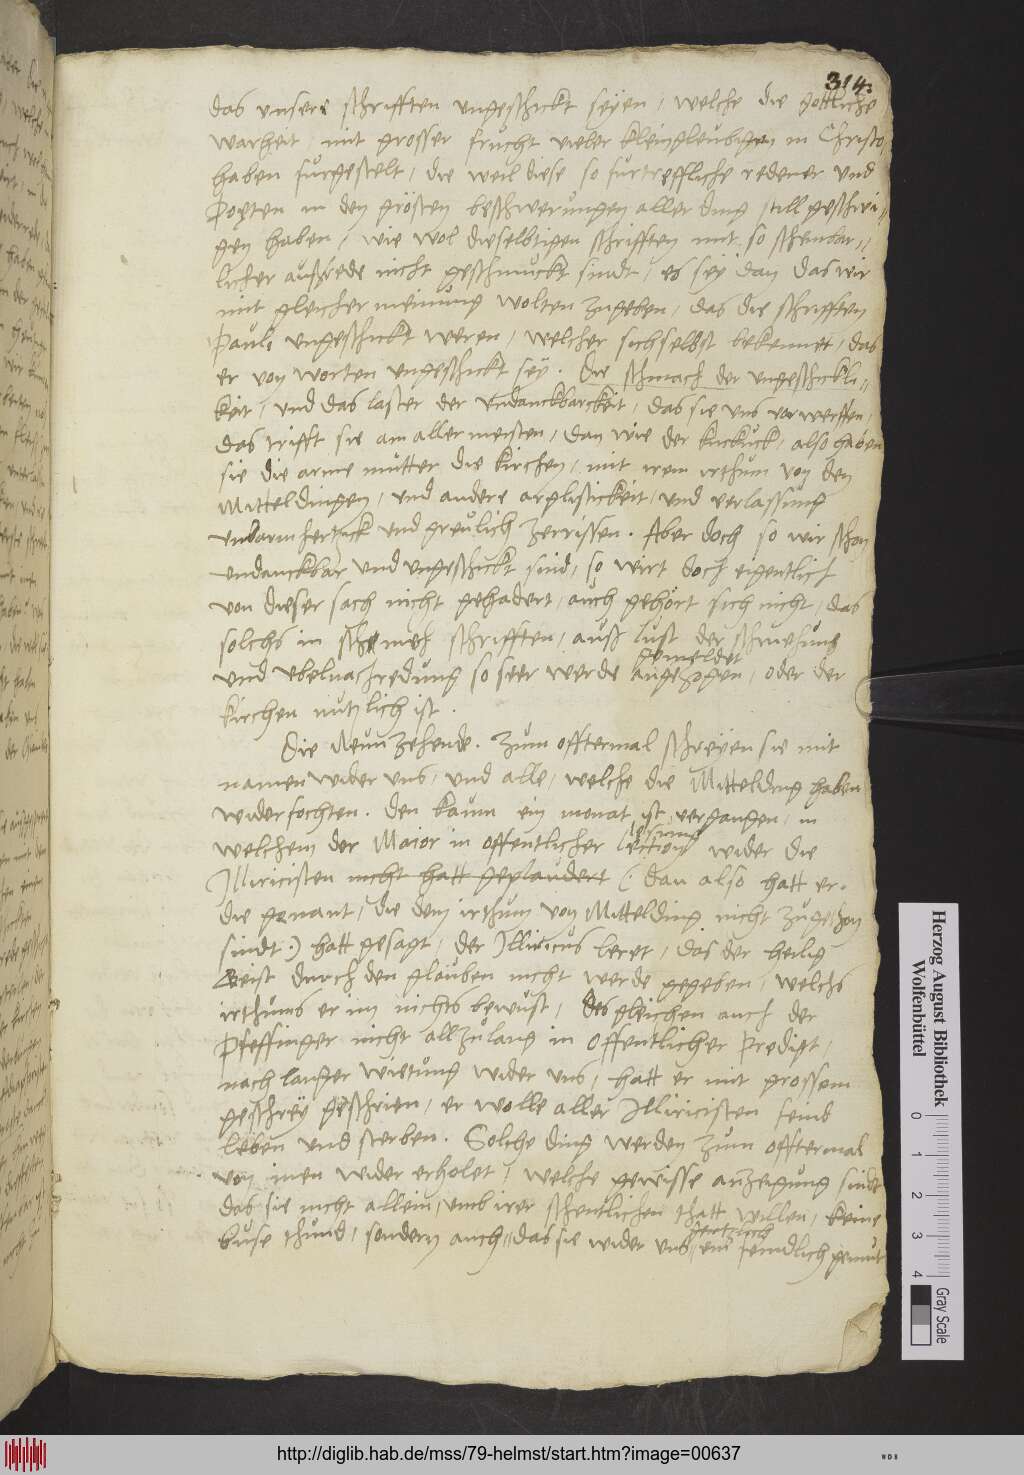 314.
das unsere schrifften ungeschickt seÿen, welche die gottliche
warheit, mit grosser frucht vieler kleingleubigen in Christo
haben furgestelt, die weil diese so furtreffliche redener und
Poeten in den grösten beschwerungen aller ding still geschwi„
gen haben, wie wol dieselbtigen schrifften mit so scheinbar„
licher außrede nicht geschmuckt sindt, es seÿ dan das wir
mit gleicher meinung wolten zugeben, das die schrifften
Pauli ungeschickt weren, welcher sichselbst bekennet, das
er von worten ungeschickt seÿ. Die schmach der ungeschickli„
keit, und das laster der undanckbarckeit, das sie uns vorwerffen,
das trifft sie am aller meisten, dan wie der kuckuck, also haben
sie die arme mutter die kirchen, mit irem irthum von den
Mitteldingen, und andere arglistickeit, und verlassung
unbarmhertzick und greulich zerrissen. Aber doch so wir schon
undanckbar und ungeschickt sind, so wirt doch eigentlich
von dieser sach nicht gehadert, auch gehört sich nicht, das
solchs in schmeh schrifften, auß lust der schmehung
gemeldet
und ubelnachredung so seer werde angezogen, oder der
kirchen nutzlich ist.
Die Neunzehende. Zum offtermal schreÿen sie mit
namen wider uns, und alle, welche die Mittelding haben
widerfochten. den kaum ein monat ist vergangen, in
lesung
welchem der Maior in offentlicher lection wider die
Illiricisten nicht hatt geplaudert (: dan also hatt er
die genant, die dem irthum von Mittelding nicht zugethan
sindt:) hatt gesagt, der Illiricus leret, das der heilig
Geist durch den glauben nicht werde gegeben, welchs
irthums er im nichts bewust, desgleichen auch der
Pfeffinger nicht allzulang in offentlicher Predigt,
nach langer wietung wider uns, hatt er mit grossem
geschreÿ geschrien, er wolle aller Illiricisten feind
leben und sterben. Solche ding werden zum offtermal
von inen wider erholet, welche gewisse anzeigung sindt
das sie nicht allein, umb irer schentlichen thatt willen, keine
buse thund, sondern auch, das sie wider uns, ein feindlich gemut
Herzog August Bibliothek
Wolfenbüttel
0 1 2 3 4
Gray Scale
http://diglib.hab.de/mss/79-helmst/start.htm?image=00637
WDB